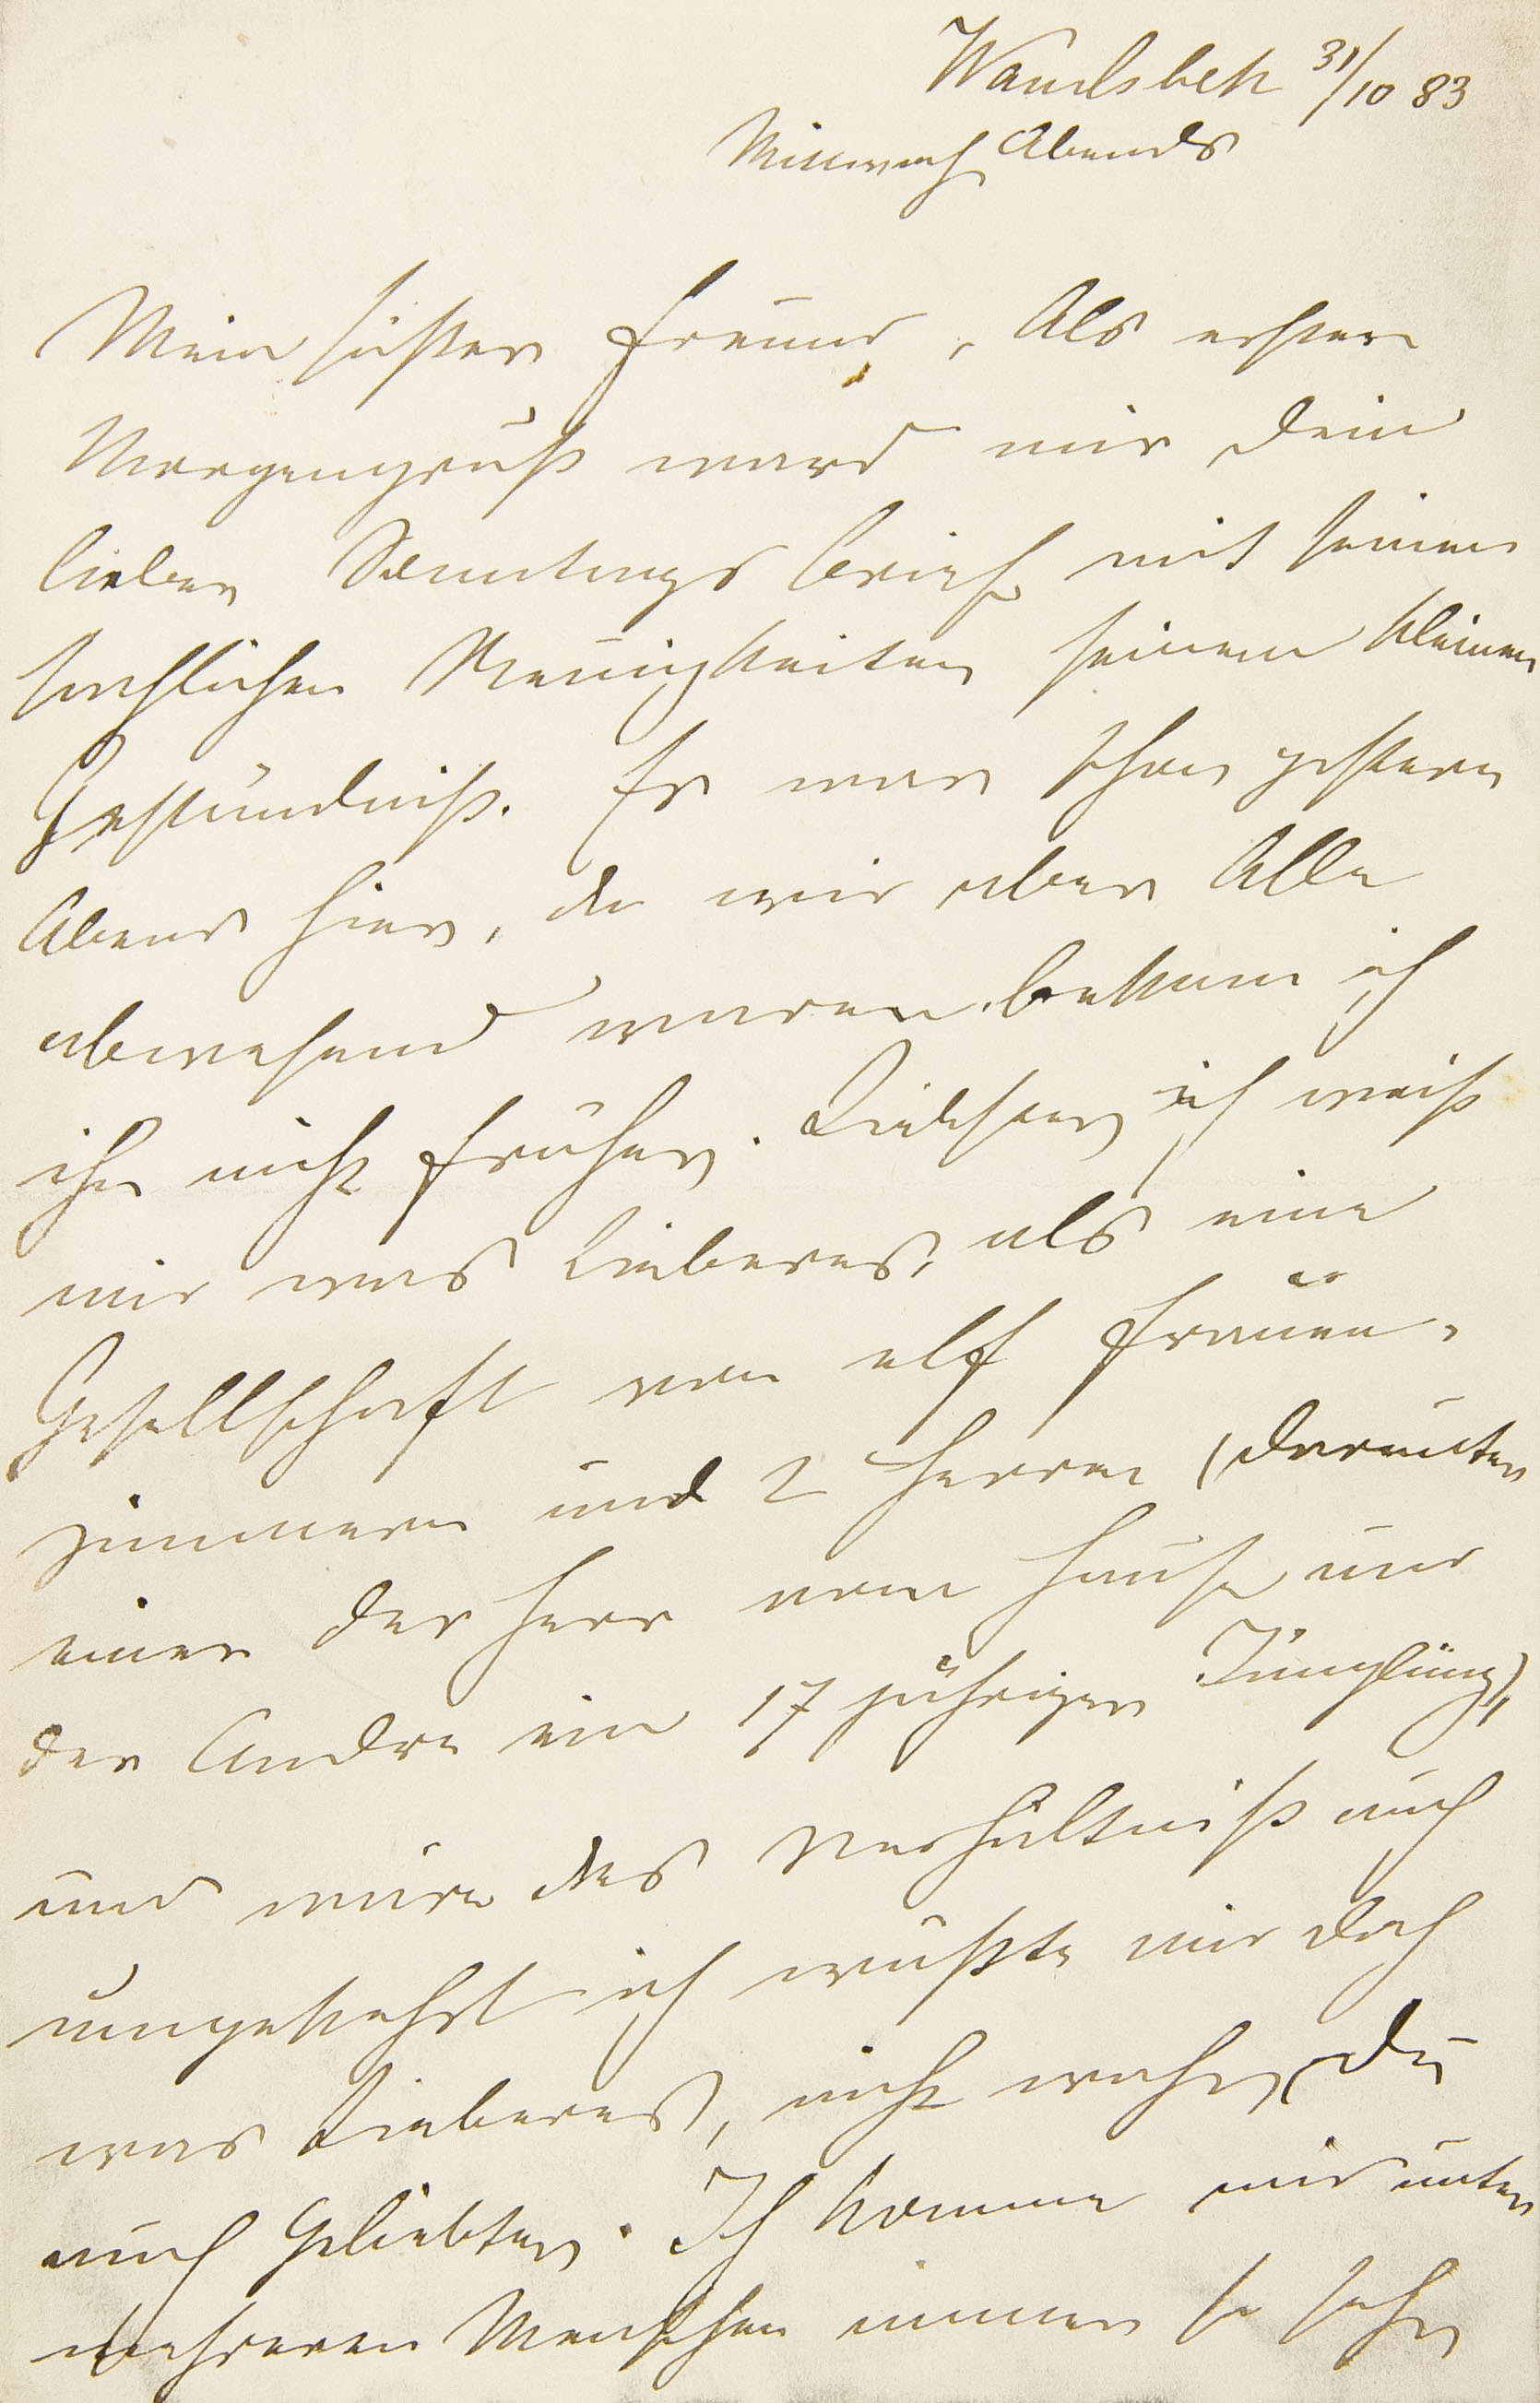 Wandsbek 31/10 83
Mittwoch Abends
Mein süßer Freund, Als erster
Morgengruß ward mir Dein
lieber Sonntags brief mit seinen
Neuigkeiten seinem kleinen
Geständniß. Er war schon gestern
Abend hier, da wir aber Alle
abwesend waren bekam ich
ihn nicht früher. Liebster ich weiß
mir was Lieberes, als eine
Gesellschaft von elf Frauen-
zimmern und 2 Herren (darunter
einer der Herr vom Hause und
der Andre ein 17 jähriger Jüngling),
und wäre das Verhältniß auch
umgekehrt ich wüßte mir doch
was Lieberes, nicht wahr, Du
auch Geliebter. Ich komme mir unter
mehreren Menschen immer so sehr